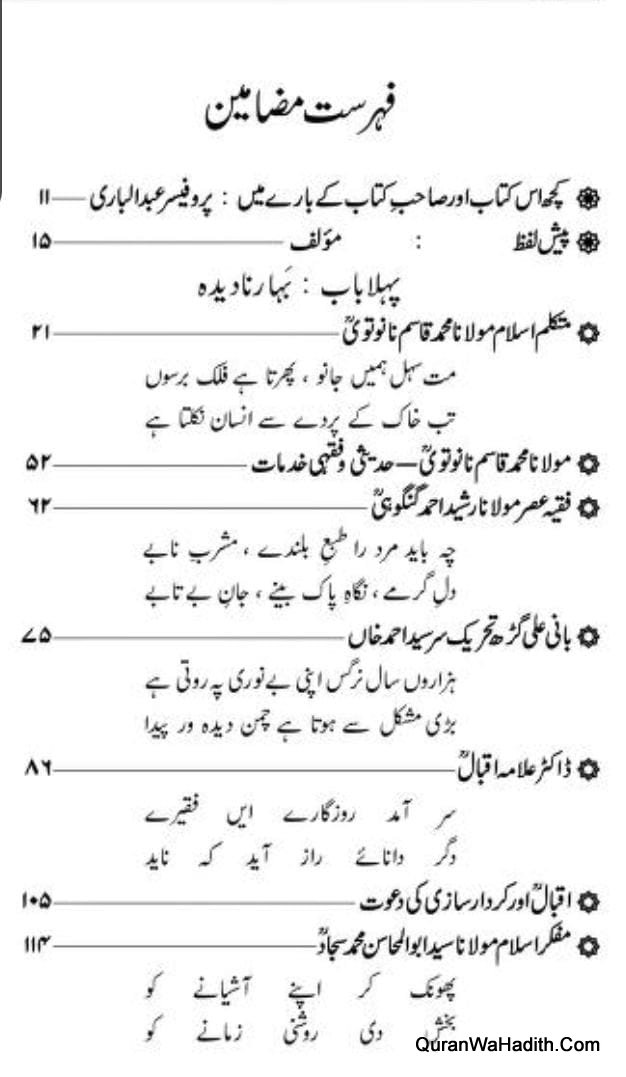 فہرست مضامین
کچھ اس کتاب اور صاحبِ کتاب کے بارے میں : پروفیسر عبدالباری ۱۱
پیش لفظ : مؤلف ۱۵
پہلا باب : بَہارِ نادیدہ
متکلم اسلام مولانا محمد قاسم نانوتویؒ ۲۱
مت سہل ہمیں جانو ، پھرتا ہے فلک برسوں
تب خاک کے پردے سے انسان نکلتا ہے
مولانا محمد قاسم نانوتویؒ — حدیثی و فقہی خدمات ۵۲
فقیہ عصر مولانا رشید احمد گنگوہیؒ ۶۲
چہ باید مرد را طبعِ بلندے ، مشربِ نابے
دلِ گرمے ، نگاہِ پاک بینے ، جانِ بے تابے
بانی علی گڑھ تحریک سر سید احمد خاں ۷۵
ہزاروں سال نرگس اپنی بے نوری پہ روتی ہے
بڑی مشکل سے ہوتا ہے چمن دیدہ ور پیدا
ڈاکٹر علامہ اقبالؒ ۸۶
سر آمد روزگارے ایں فقیرے
دگر دانائے راز آید کہ ناید
اقبالؒ اور کردار سازی کی دعوت ۱۰۵
مفکر اسلام مولانا سید ابوالمحاسن محمد سجادؒ ۱۱۴
پھونک کر اپنے آشیانے کو
بخش دی روشنی زمانے کو
QuranWaHadith.Com